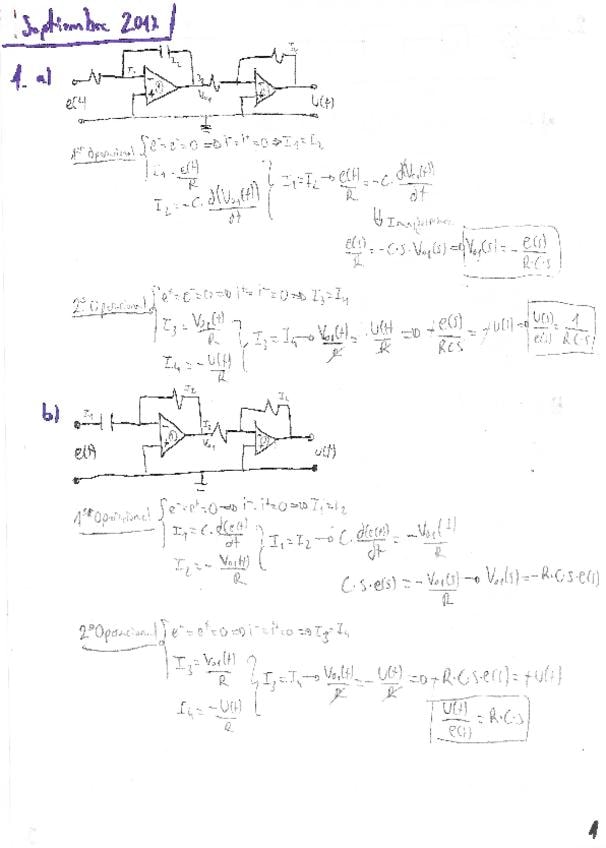 Septiembre 2012
1. a)
I₁ I₂ I₃ I₄
e(t) V₀₁ U(t)
1er Operacional { e⁺=e⁻=0 ⇒ i⁻=i⁺=0 ⇒ I₁=I₂
I₁ = e(t)/R
I₂ = -C· d(V₀₁(t))/dt } I₁=I₂ → e(t)/R = -C· d(V₀₁(t))/dt
e(s)/R = -C·s·V₀₁(s) ⇒ V₀₁(s) = - e(s)/R·C·s
2º Operacional { e⁺=e⁻=0 ⇒ i⁺=i⁻=0 ⇒ I₃=I₄
I₃ = V₀₁(t)/R
I₄ = -U(t)/R } I₃=I₄ → V₀₁(t)/R = - U(t)/R ⇒ + e(s)/RCS = +U(s) ⇒ U(s)/e(s) = 1/R·C·s
b)
I₁ I₂ I₃ I₄
e(t) V₀₁ U(t)
1er Operacional { e⁻=e⁺=0 ⇒ i⁻=i⁺=0 ⇒ I₁=I₂
I₁ = C· d(e(t))/dt
I₂ = - V₀₁(t)/R } I₁=I₂ → C· d(e(t))/dt = -V₀₁(t)/R
C·s·e(s) = -V₀₁(s)/R → V₀₁(s) = -R·C·s·e(s)
2º Operacional { e⁻=e⁺=0 ⇒ i⁻=i⁺=0 ⇒ I₃=I₄
I₃ = V₀₁(t)/R
I₄ = -U(t)/R } I₃=I₄ → V₀₁(t)/R = - U(t)/R ⇒ +R·C·s·e(s) = +U(t)
U(t)/e(s) = R·C·s
1